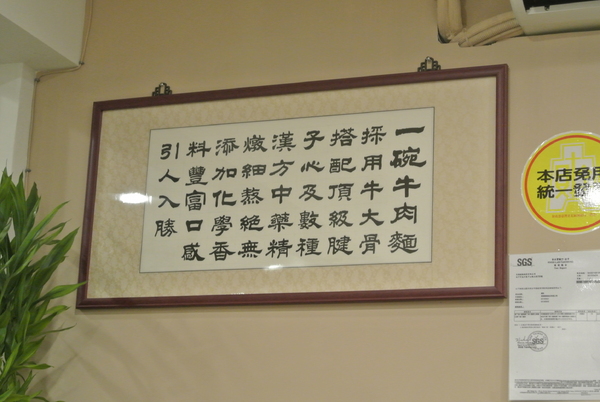 一碗牛肉麵
採用牛大骨
搭配頂級腱
子心及數種
漢方中藥精
燉細熬絕無
添加化學香
料豐富口感
引人入勝
本店免用
統一發
SGS
SGS